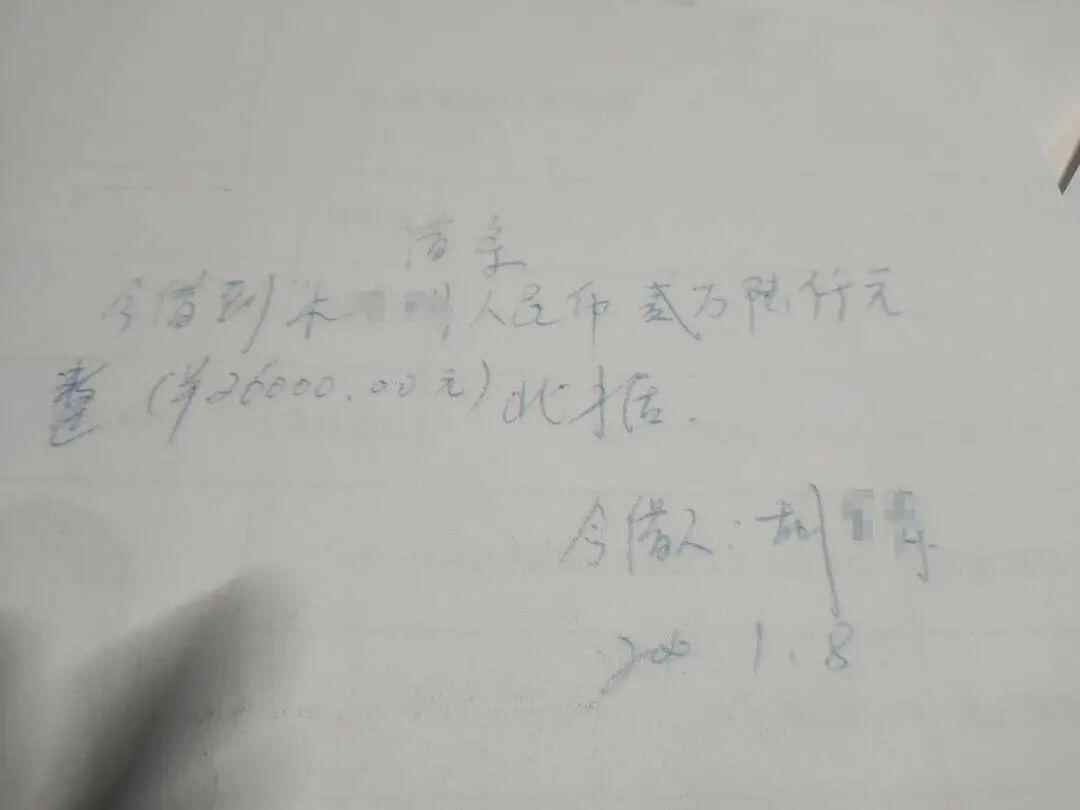 借条
今借到朱 人民币贰万陆仟元
整(¥26000.00元)此据.
今借人:胡
200 1.8